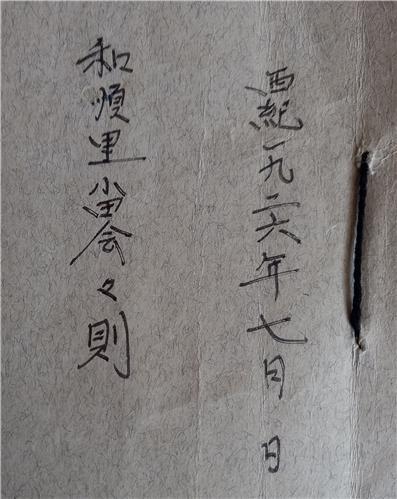 西紀一九二六年七月 日
和順里 会々則